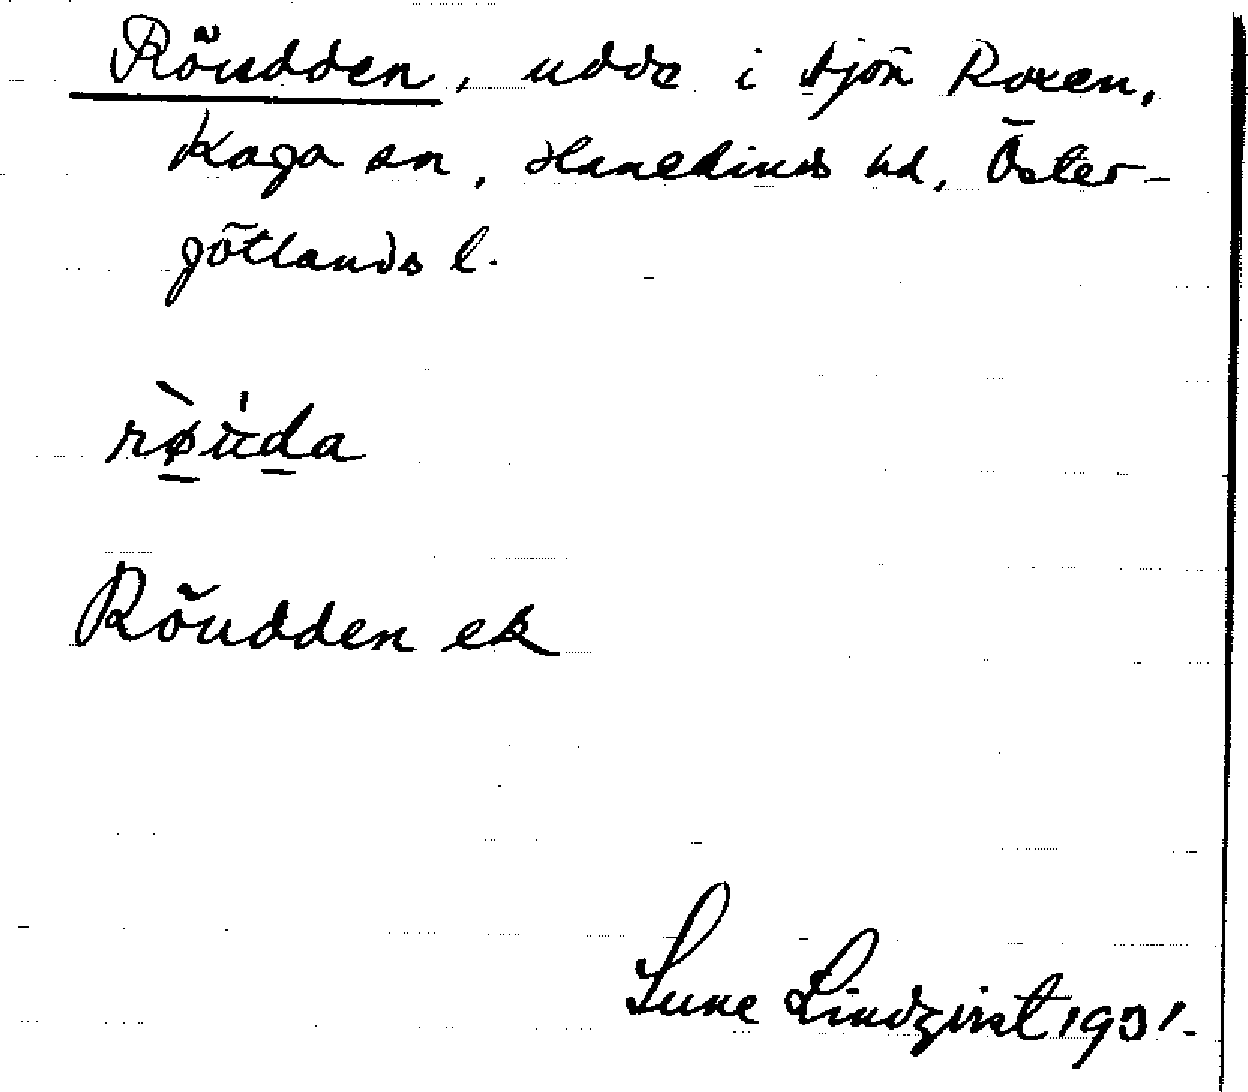 Röudden, udde i sjön Roxen,
Kaga sn, Hanekinds hd, Öster-
götlands l.
rø̀u̍da
Röudden ek
Sune Lindqvist 1931.